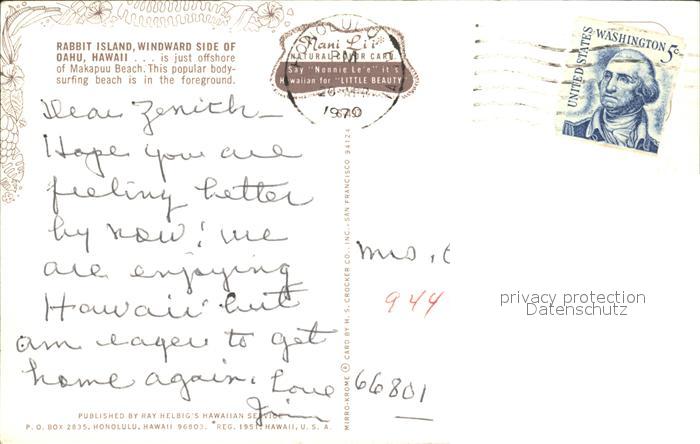 RABBIT ISLAND, WINDWARD SIDE OF
OAHU, HAWAII . . . is just offshore
of Makapuu Beach. This popular body-
surfing beach is in the foreground.
Nani Li'i
NATURAL COLOR CARD
Say "Nonnie Le'e" it's
Hawaiian for "LITTLE BEAUTY"
HONOLULU
PM
1970
UNITED STATES
WASHINGTON 5¢
Dear Zenith –
Hope you are
feeling better
by now! We
are enjoying
Hawaii but
am eager to get
home again. Love
Jim
Mrs. C
944
66801
privacy protection
Datenschutz
MIRRO-KROME ® CARD BY H. S. CROCKER CO., INC., SAN FRANCISCO 94124
PUBLISHED BY RAY HELBIG'S HAWAIIAN SERVICE
P. O. BOX 2835, HONOLULU, HAWAII 96803. REG. 1951. HAWAII, U. S. A.